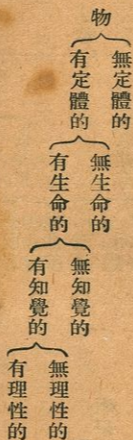 物
無定體的
有定體的
無生命的
有生命的
無知覺的
有知覺的
無理性的
有理性的